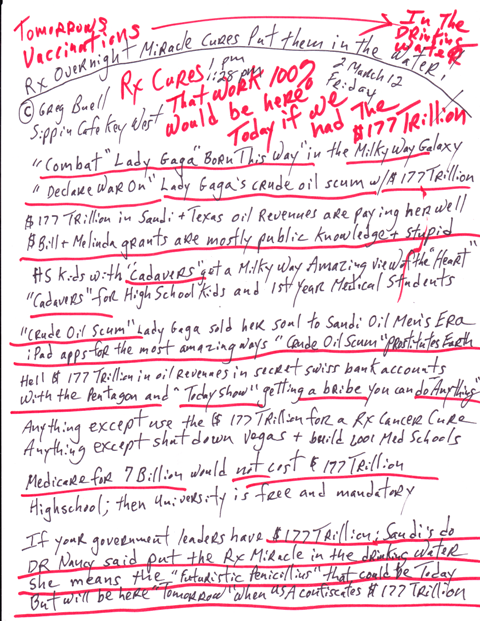 Tomorrows Vaccinations → In The Drinking Water
Rx Overnight Miracle Cures Put them in the water,
© Greg Buell
Sippin Cafe Key West
Rx Cures 1:28 pm
That work 100%
would be here
Today if we
had The
$177 Trillion
2 March 12
Friday
"Combat" Lady Gaga "Born This Way" in the Milky Way Galaxy
"Declare War On" Lady Gaga's crude oil scum w/$177 Trillion
$177 Trillion in Saudi + Texas oil Revenues are paying her well
$ Bill + Melinda grants are mostly public knowledge + stupid
HS Kids with "Cadavers" got a Milky Way Amazing view of the "Heart"
"Cadavers" for High School Kids and 1st year Medical Students
"Crude Oil Scum" Lady Gaga sold her soul to Saudi Oil Men's ERA
iPad apps for the most amazing ways "Crude Oil Scum" Prostitutes Earth
Hell $177 Trillion in oil Revenues in secret swiss bank accounts
With the Pentagon and "Today Show" getting a bribe you can do Anything"
Anything except use the $177 Trillion for a Rx Cancer Cure
Anything except shut down Vegas + build 1001 Med Schools
Medicare for 7 Billion would not cost $177 Trillion
Highschool; then University is free and mandatory
If your government leaders have $177 Trillion; Saudi's do
DR Nancy said put the Rx Miracle in the drinking water
she means the "Futuristic Penicillins" that could be Today
But will be here "Tomorrow" when USA confiscates $177 Trillion